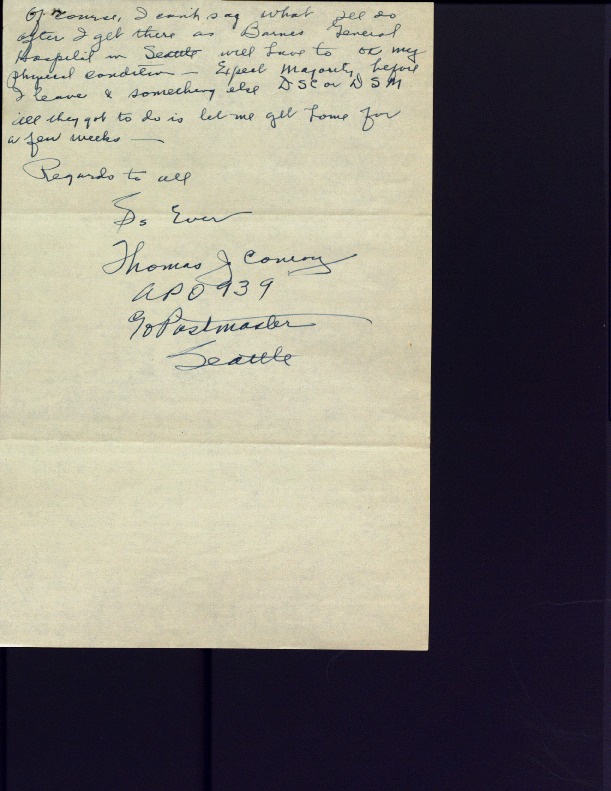 Of course, I can't say what I'll do
after I get there as Barnes General
Hospital in Seattle will have to ok my
physical condition — Expect Majority before
I leave & something else DSC or DSM
all they got to do is let me get home for
a few weeks —
Regards to all
As Ever
Thomas J Conroy
APO 939
c/o Postmaster
Seattle